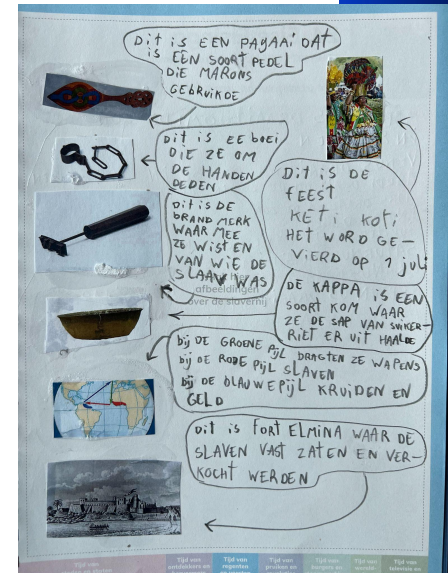 DIT IS EEN PAGAAI DAT
IS EEN SOORT PEDEL
DIE MARONS
GEBRUIKDE
DIT IS EE BOEI
DIE ZE OM
DE HANDEN
DEDEN
DIT IS DE
FEEST
KETI KOTI
HET WORD GE-
VIERD OP 1 juli
DIT IS DE
BRAND MERK
WAAR MEE
ZE WISTEN
VAN WIE DE
SLAAV WAS
afbeeldingen
over de slavernij
DE KAPPA IS EEN
SOORT KOM WAAR
ZE DE SAP VAN SUIKER-
RIET ER UIT HAALDE
bij DE GROENE PijL BRAGTEN ZE WAPENS
bij DE RODE PijL SLAVEN
bij DE BLAUWE PijL KRUIDEN EN
GELD
DIT IS FORT ELMINA WAAR DE
SLAVEN VAST ZATEN EN VER-
KOCHT WERDEN
Tijd van
ontdekkers en
Tijd van
regenten
Tijd van
pruiken en
Tijd van
burgers en
Tijd van
wereld-
Tijd van
televisie en